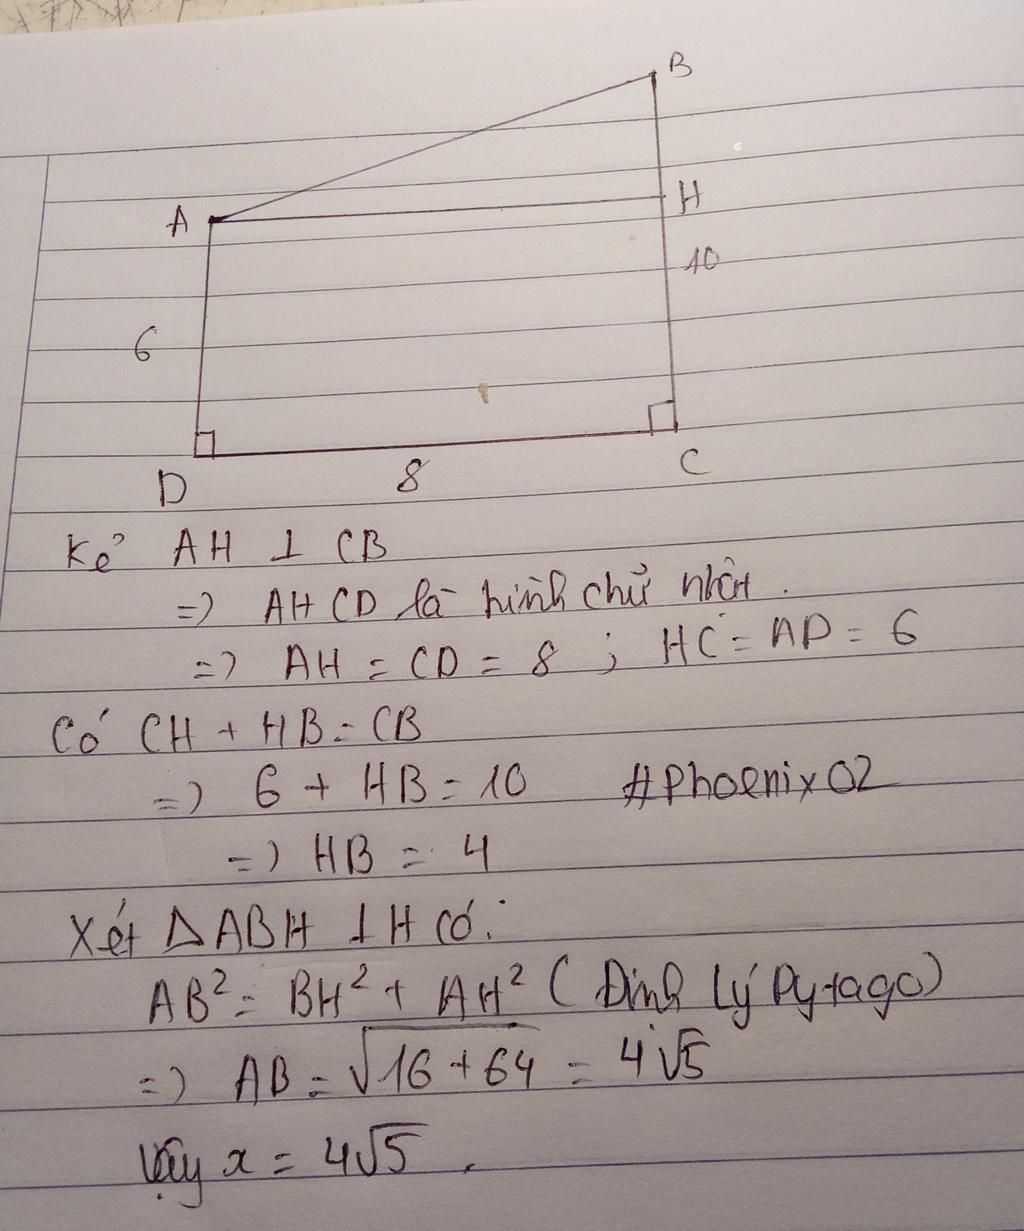 B
A
H
10
6
D
8
C
Kẻ AH ⊥ CB
=> AHCD là hình chữ nhật.
=> AH = CD = 8 ; HC = AD = 6
Có CH + HB = CB
=> 6 + HB = 10 #Phoenix02
=> HB = 4
Xét ΔABH ⊥ H có:
AB² = BH² + AH² (Định lý Pytago)
=> AB = √16 + 64 = 4√5
Vậy x = 4√5.